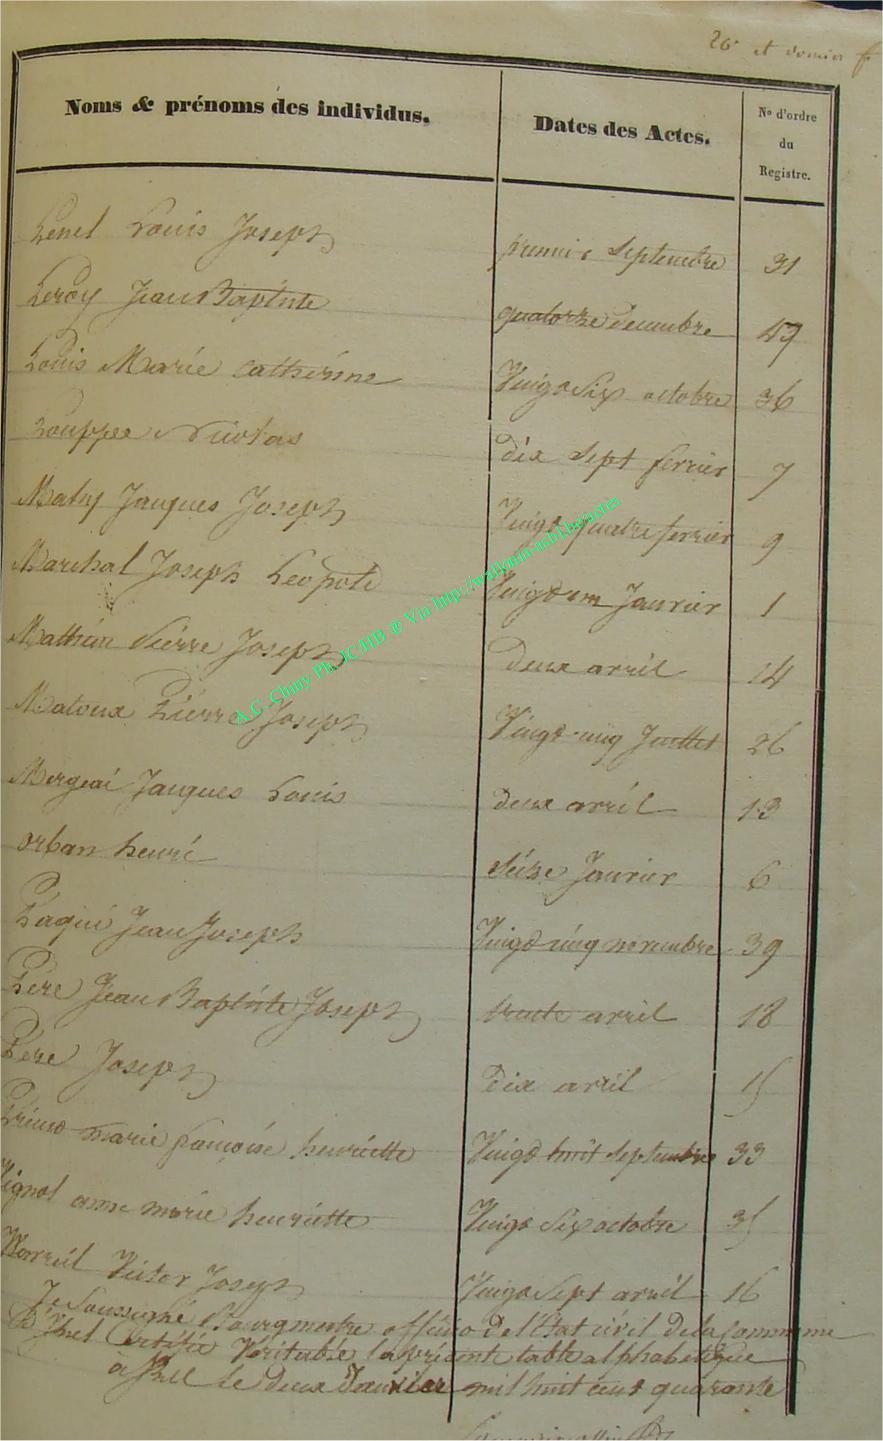 20 et dernier f
Noms & prénoms des individus. Dates des Actes. No d'ordre du Registre.
Lenel Louis Joseph premier Septembre 31
Leroy Jean Baptiste quatorze decembre 42
Louis Marie Catherine Vingt Six octobre 36
Louppee Nicolas dix Sept fevrier 7
Jacques Joseph Vingt quatre fevrier 9
Marchal Joseph Leopold Vingt un Janvier 1
Mathieu Pierre Joseph Deux avril 14
Matoux Pierre Joseph Vingt cinq Juillet 26
Mergeai Jacques Louis deux avril 13
Orban henri Seize Janvier 6
Paqui Jean Joseph Vingt cinq novembre 39
Pere Jean Baptiste Joseph trente avril 18
Pere Joseph Dix avril 15
marie françoise henriette Vingt huit Septembre 33
Vignol anne marie henriette Vingt Six octobre 35
Victor Joseph Vingt Sept avril 16
Je Soussigné Bourgmestre officier de l'Etat civil de la Commune
Certifie Veritable la présente table alphabetique
à le deux Janvier mil huit cent quarante
A.G. Chiny Ph. JC.HB ® Via http://wallonia-asbl.be/actes